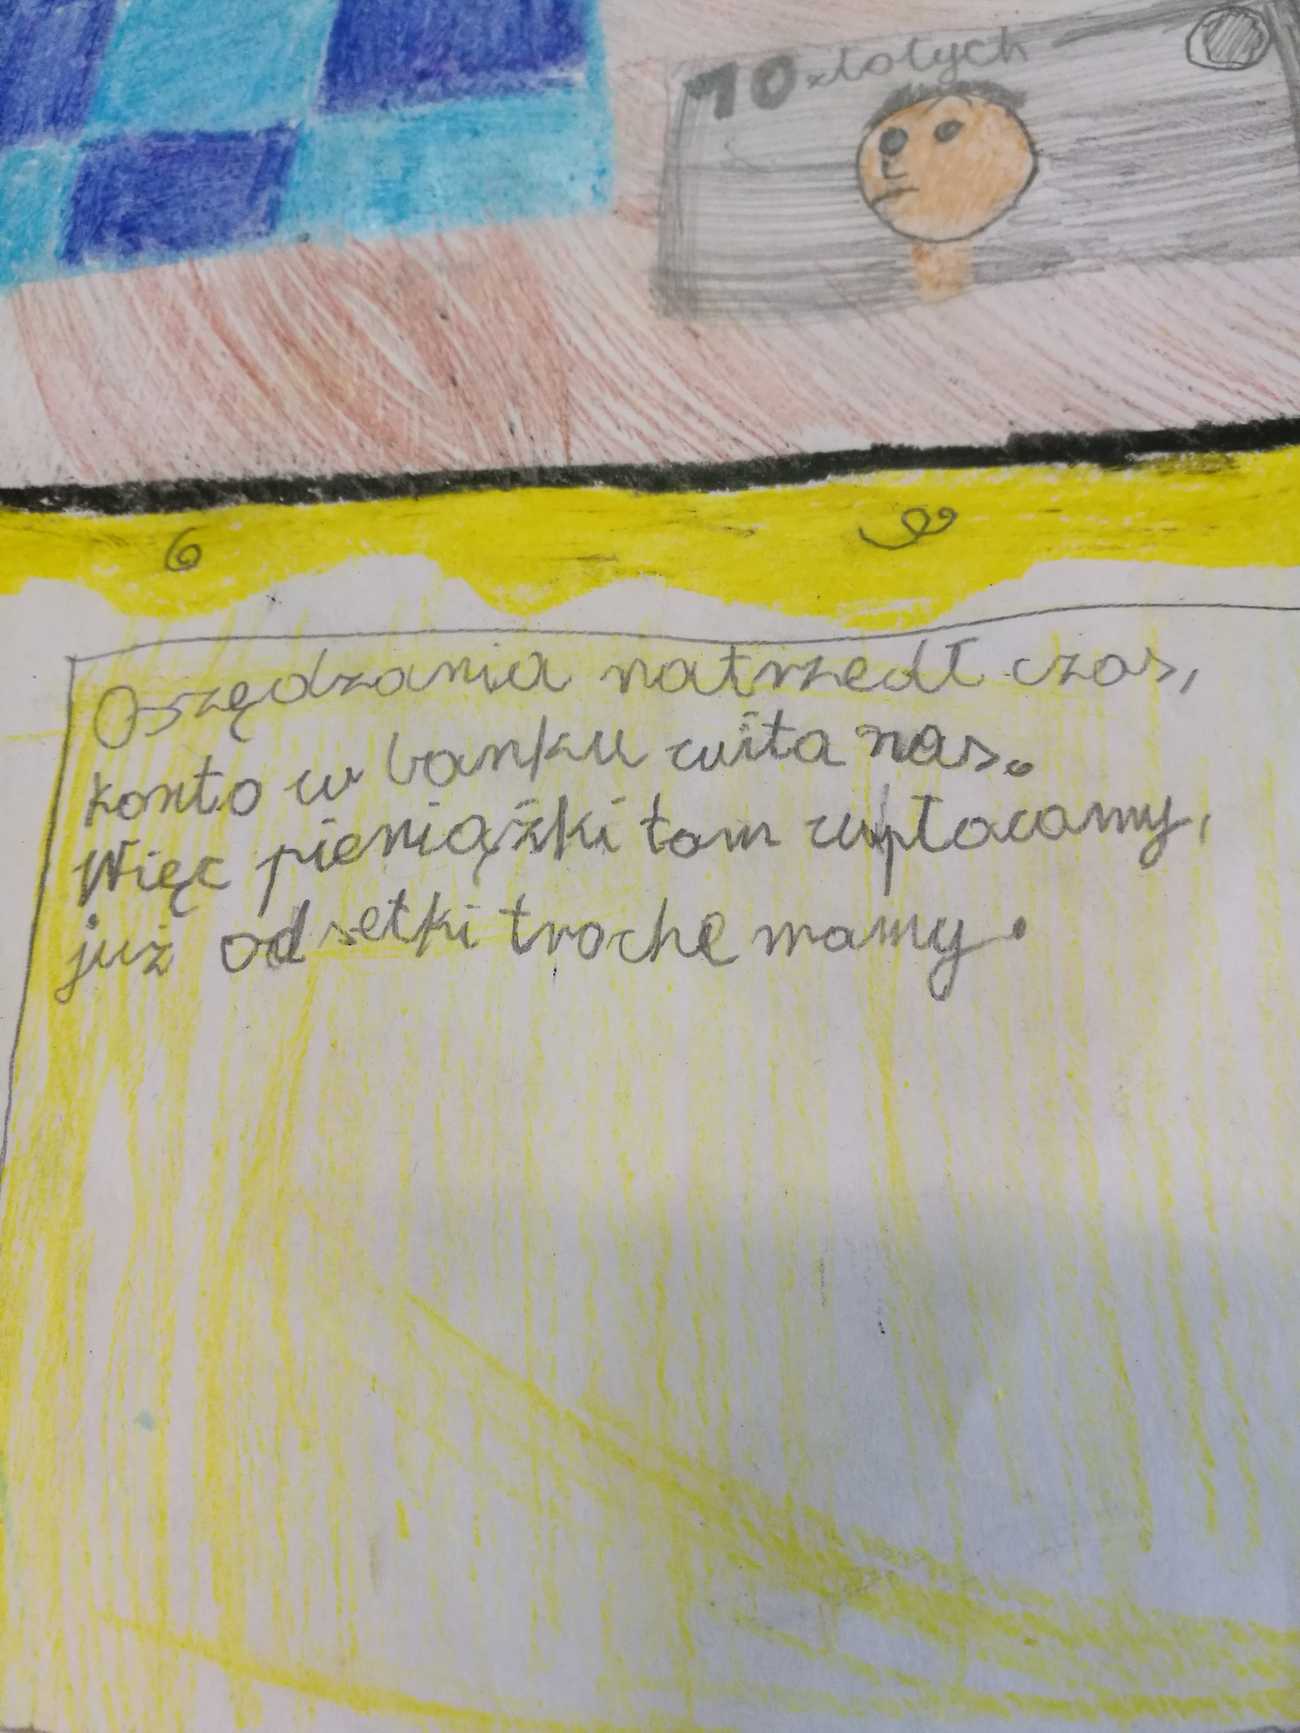 10 złotych
Oszędzania natrzedł czas,
konto w banku wita nas.
Więc pieniążki tam wpłacamy,
już odsetki trochę mamy.